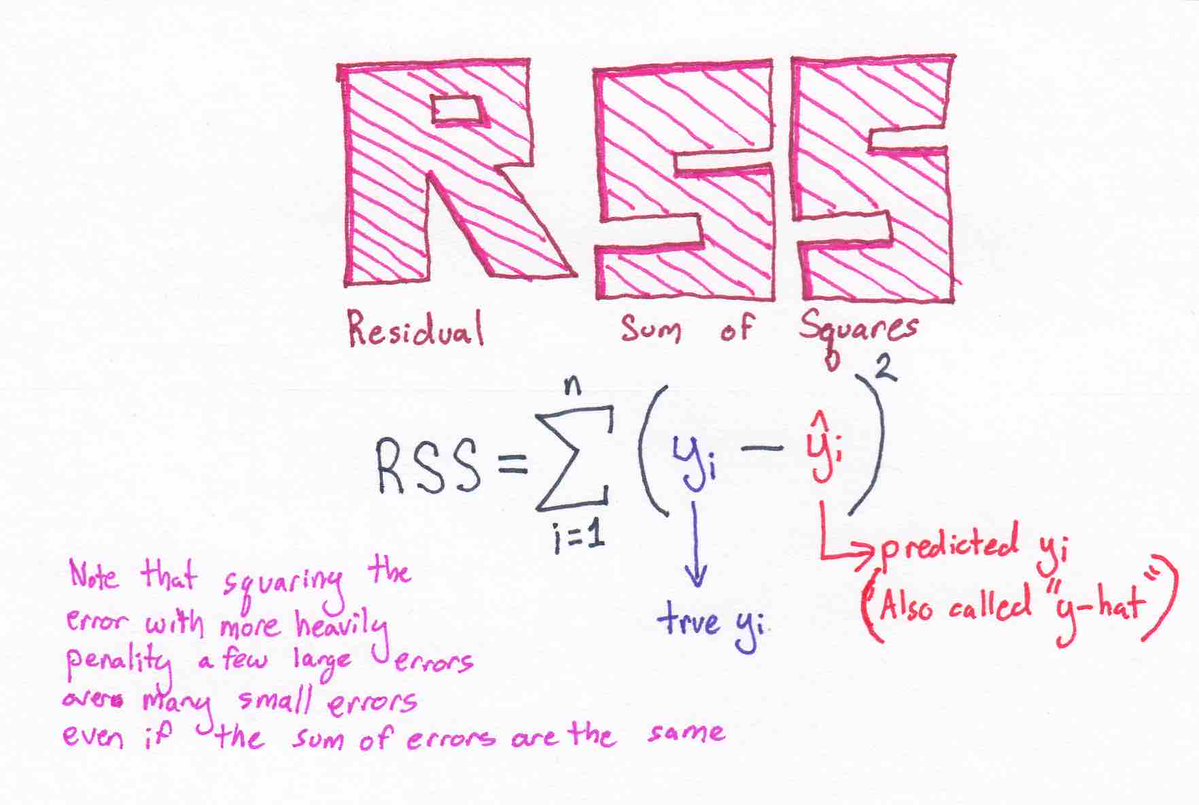 RSS
Residual Sum of Squares
RSS = ∑ⁿᵢ₌₁ (yᵢ − ŷᵢ)²
predicted yᵢ
(Also called "y-hat")
true yᵢ
Note that squaring the
error with more heavily
penality a few large errors
over many small errors
even if the sum of errors are the same